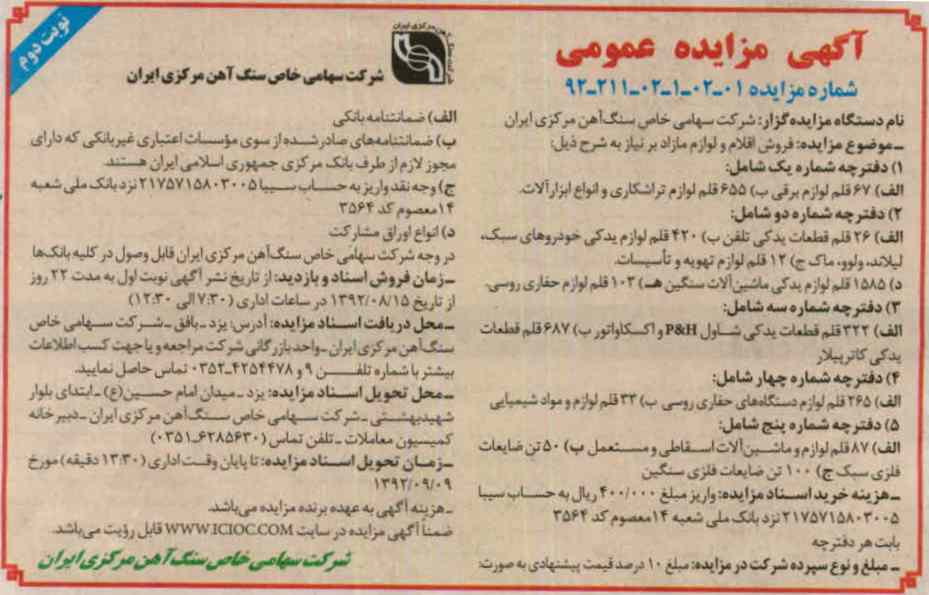 نوبت دوم
آگهی مزایده عمومی
شماره مزایده ۰۱-۰۲-۱-۰۲-۲۱۱-۹۲
نام دستگاه مزایده‌گزار: شرکت سهامی خاص سنگ‌آهن مرکزی ایران
ـ موضوع مزایده: فروش اقلام و لوازم مازاد بر نیاز به شرح ذیل:
۱) دفترچه شماره یک شامل:
الف) ۶۷ قلم لوازم برقی ب) ۶۵۵ قلم لوازم تراشکاری و انواع ابزارآلات.
۲) دفترچه شماره دو شامل:
الف) ۲۶ قلم قطعات یدکی تلفن ب) ۴۲۰ قلم لوازم یدکی خودروهای سبک،
لیلاند، ولوو، ماک ج) ۱۲ قلم لوازم تهویه و تأسیسات.
د) ۱۵۸۵ قلم لوازم یدکی ماشین‌آلات سنگین هـ) ۱۰۳ قلم لوازم حفاری روسی.
۳) دفترچه شماره سه شامل:
الف) ۳۲۲ قلم قطعات یدکی شاول P&H و اکسکاواتور ب) ۶۸۷ قلم قطعات
یدکی کاترپیلار
۴) دفترچه شماره چهار شامل:
الف) ۲۶۵ قلم لوازم دستگاه‌های حفاری روسی ب) ۳۳ قلم لوازم و مواد شیمیایی
۵) دفترچه شماره پنج شامل:
الف) ۸۷ قلم لوازم و ماشین‌آلات اسقاطی و مستعمل ب) ۵۰ تن ضایعات
فلزی سبک ج) ۱۰۰ تن ضایعات فلزی سنگین
ـ هزینه خرید اسناد مزایده: واریز مبلغ ۴۰۰/۰۰۰ ریال به حساب سیبا
۲۱۷۵۷۱۵۸۰۳۰۰۵ نزد بانک ملی شعبه ۱۴معصوم کد ۳۵۶۴
بابت هر دفترچه
ـ مبلغ و نوع سپرده شرکت در مزایده: مبلغ ۱۰ درصد قیمت پیشنهادی به صورت:
شرکت سنگ آهن مرکزی ایران
شرکت سهامی خاص سنگ آهن مرکزی ایران
الف) ضمانتنامه بانکی
ب) ضمانتنامه‌های صادرشده از سوی مؤسسات اعتباری غیربانکی که دارای
مجوز لازم از طرف بانک مرکزی جمهوری اسلامی ایران هستند.
ج) وجه نقد واریز به حساب سیبا ۲۱۷۵۷۱۵۸۰۳۰۰۵ نزد بانک ملی شعبه
۱۴معصوم کد ۳۵۶۴
د) انواع اوراق مشارکت
در وجه شرکت سهامی خاص سنگ‌آهن مرکزی ایران قابل وصول در کلیه بانک‌ها
ـ زمان فروش اسناد و بازدید: از تاریخ نشر آگهی نوبت اول به مدت ۲۲ روز
از تاریخ ۱۳۹۲/۰۸/۱۵ در ساعات اداری (۷:۳۰ الی ۱۲:۳۰)
ـ محل دریافت اسناد مزایده: آدرس: یزد ـ بافق ـ شرکت سهامی خاص
سنگ‌آهن مرکزی ایران ـ واحد بازرگانی شرکت مراجعه و یا جهت کسب اطلاعات
بیشتر با شماره تلفن ۹ و ۴۲۵۴۴۷۸-۰۳۵۲ تماس حاصل نمایید.
ـ محل تحویل اسناد مزایده: یزد ـ میدان امام حسین(ع) ـ ابتدای بلوار
شهیدبهشتی ـ شرکت سهامی خاص سنگ‌آهن مرکزی ایران ـ دبیرخانه
کمیسیون معاملات ـ تلفن تماس (۶۲۸۵۶۳۰-۰۳۵۱)
ـ زمان تحویل اسناد مزایده: تا پایان وقت اداری (۱۳:۳۰ دقیقه) مورخ
۱۳۹۲/۰۹/۰۹
ـ هزینه آگهی به عهده برنده مزایده می‌باشد.
ضمناً آگهی مزایده در سایت WWW.ICIOC.COM قابل رؤیت می‌باشد.
شرکت سهامی خاص سنگ آهن مرکزی ایران